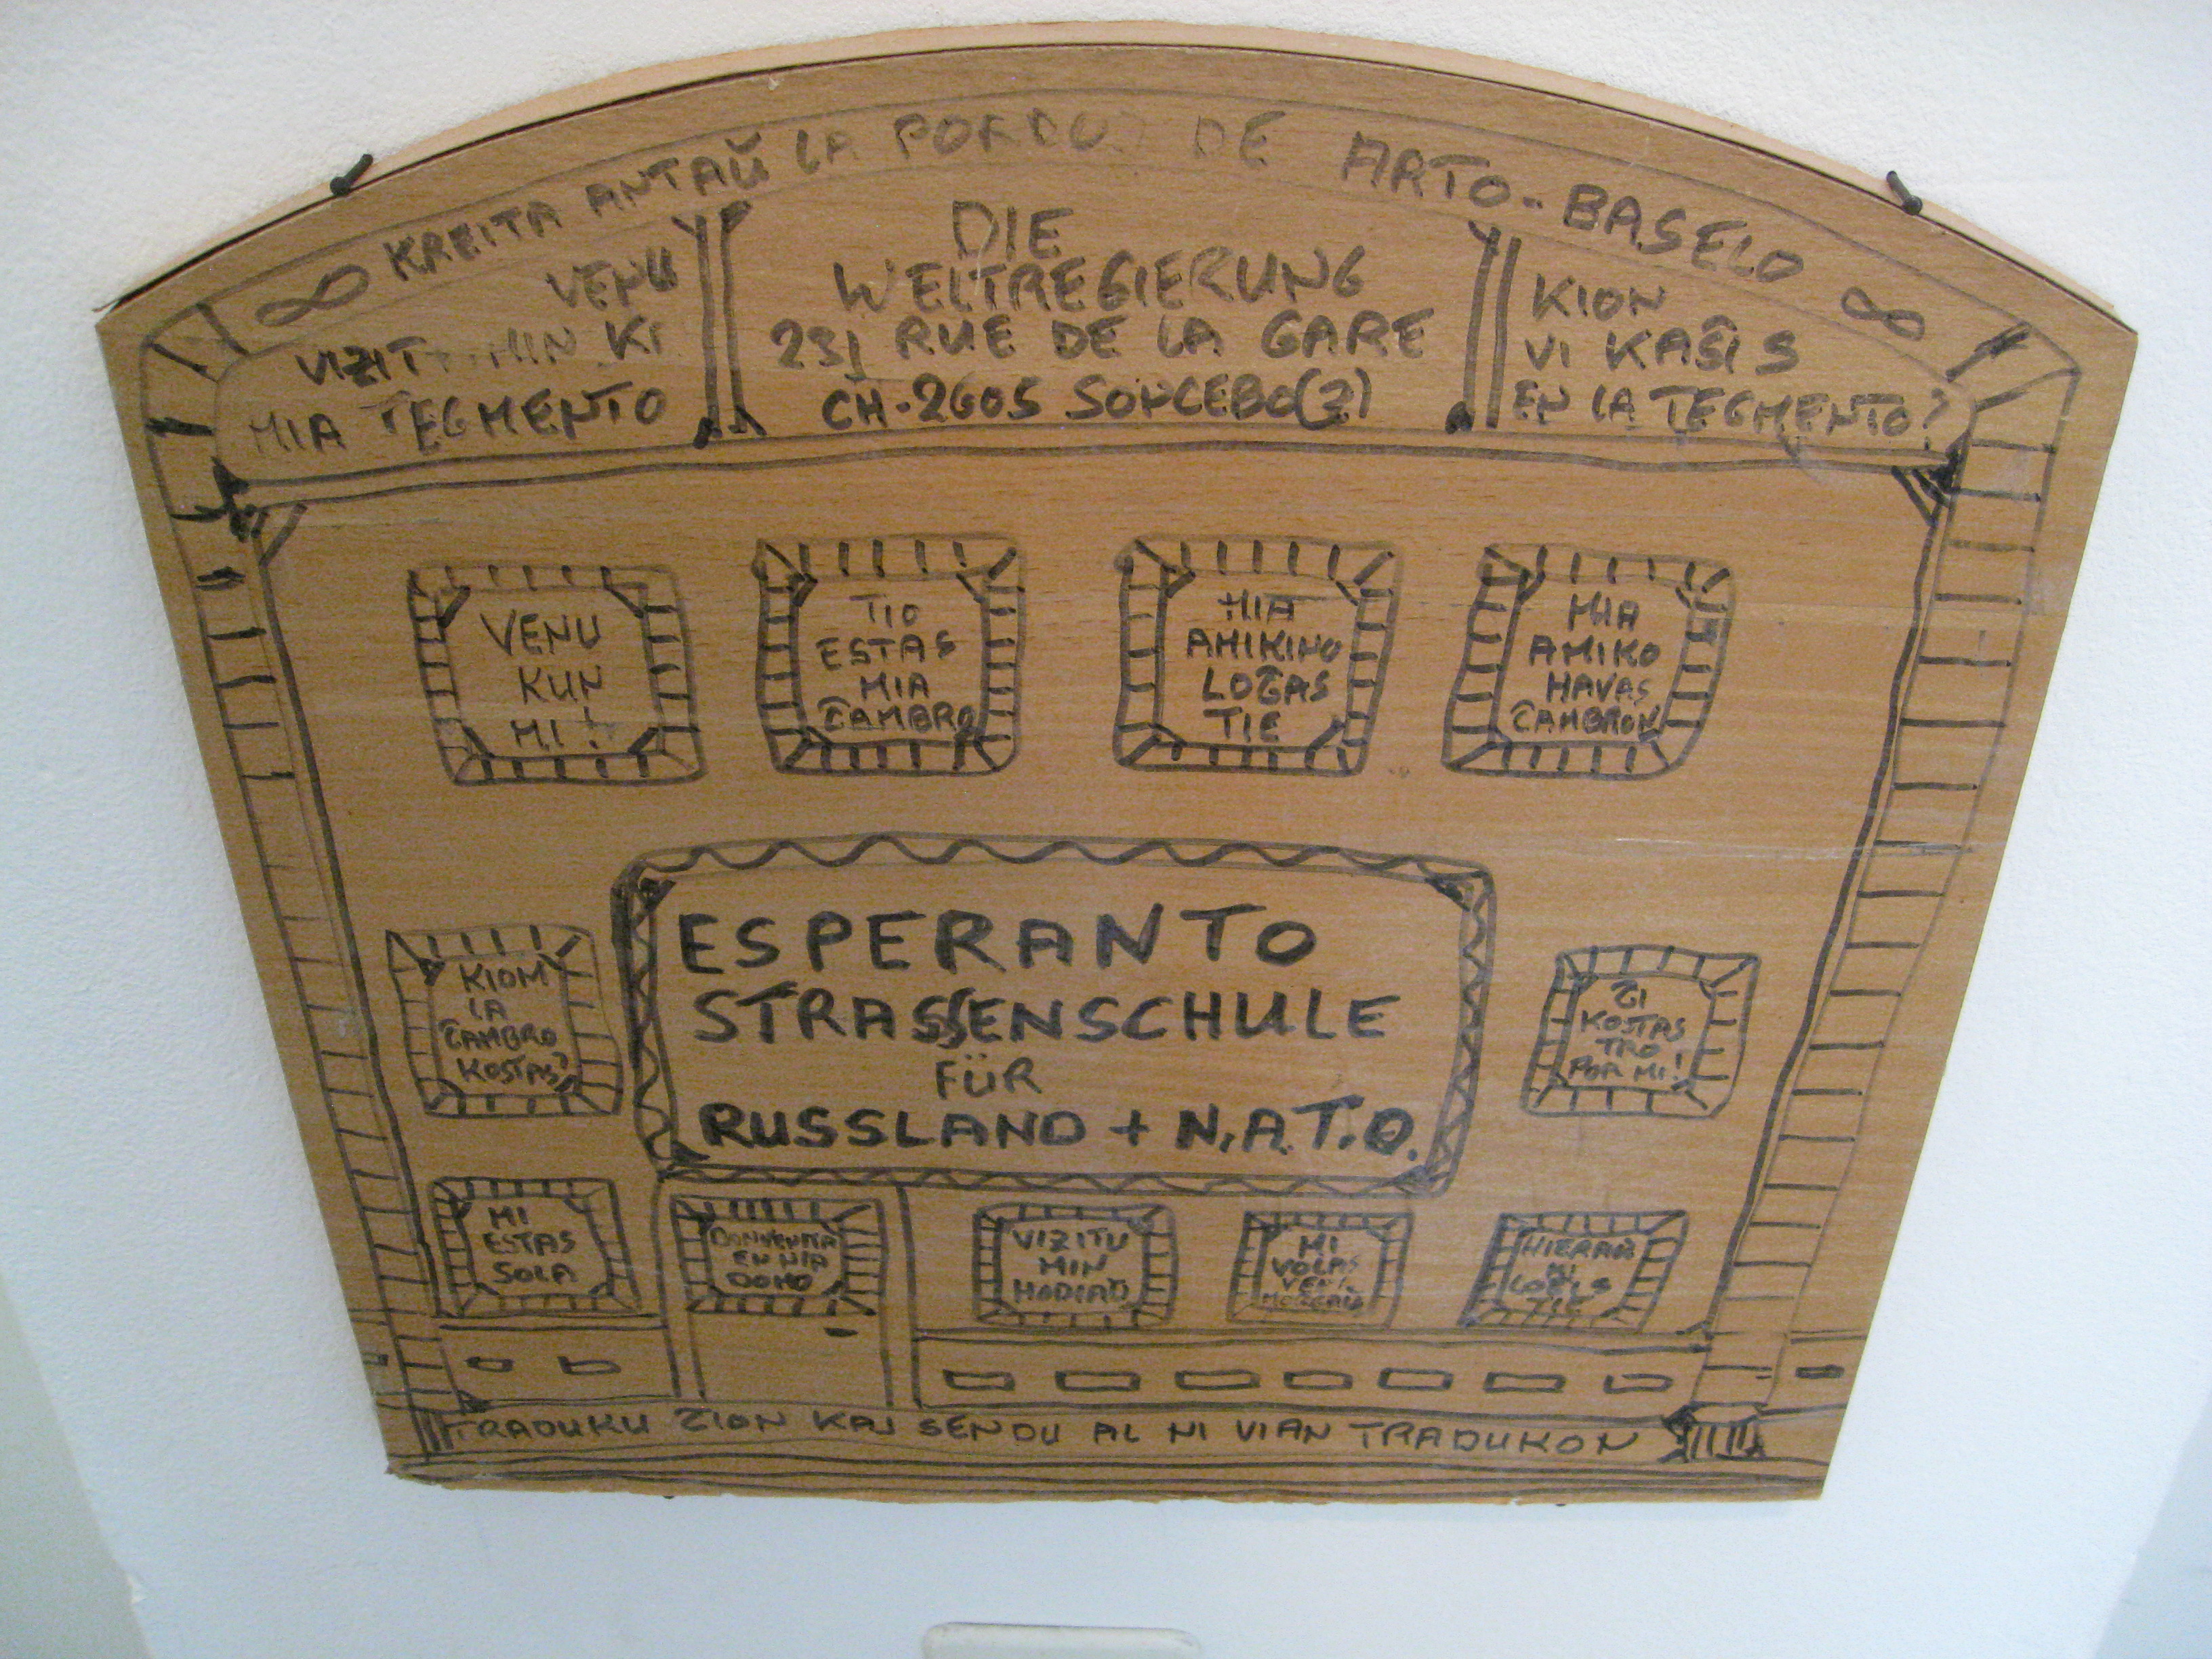 ∞ KREITA ANTAŬ LA DE ARTO-BASELO ∞
VENU
MIN
MIA TEGMENTO
DIE
WELTREGIERUNG
231 RUE DE LA GARE
CH-2605 SONCEBO(Z)
KION
VI KAŜIS
EN LA TEGMENTO?
VENU
KUN
MI!
TIO
ESTAS
MIA
ĈAMBRO
MIA
AMIKINO
LOĜAS
TIE
MIA
AMIKO
HAVAS
ĈAMBRON
KIOM
LA
ĈAMBRO
KOSTAS?
ESPERANTO
STRASSENSCHULE
FÜR
RUSSLAND + N.A.T.O.
ĜI
KOSTAS
TRO
POR MI!
MI
ESTAS
SOLA
BONVENITA
EN MIA
DOMO
VIZITU
MIN
HODIAŬ
MI
VOLAS
VENI
MORGAŬ
HIERAŬ
MI
LOĜIS
TIE
TRADUKU ĜION KAJ SENDU AL MI VIAN TRADUKON